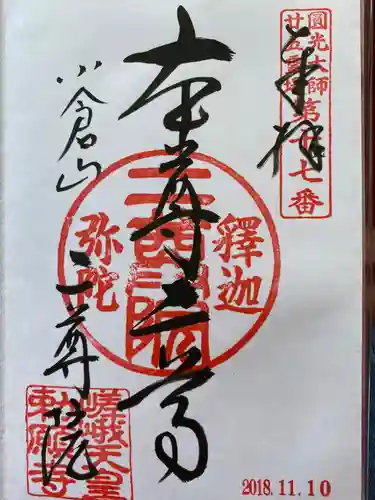 奉拝
圓光大師
廿五霊場
第十七番
本尊二尊
釋迦
弥陀
小倉山
二尊院
嵯峨天皇
勅願寺
2018.11.10